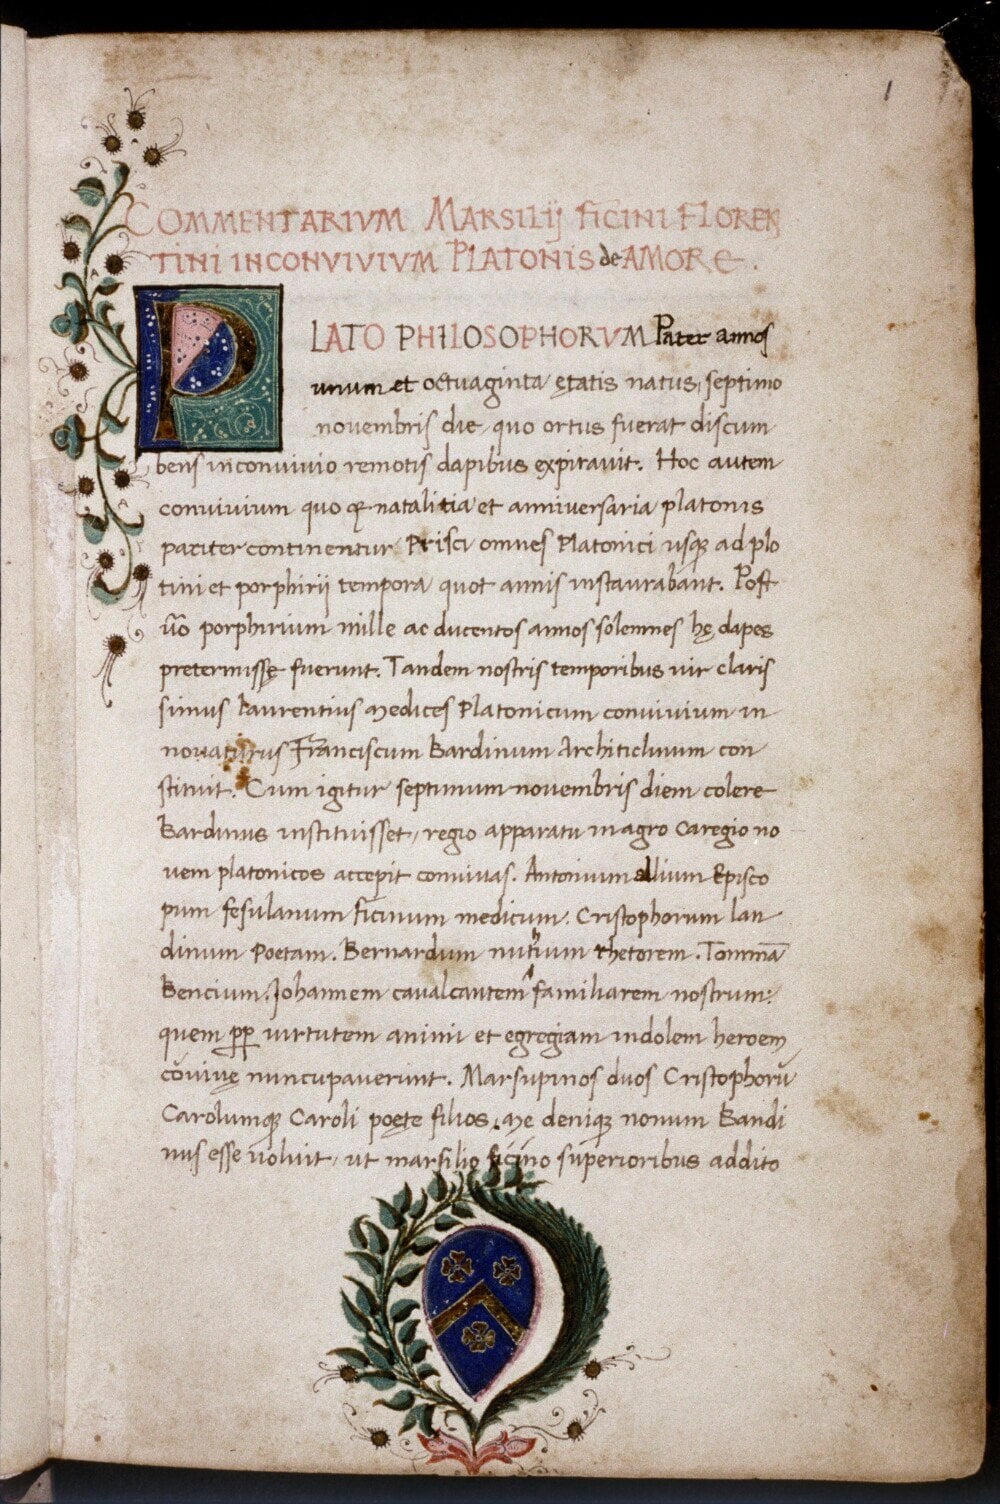 1
COMMENTARIVM MARSILIJ FICINI FLOREN
TINI IN CONVIVIVM PLATONIS de AMORE.
PLATO PHILOSOPHORVM Pater annos
unum et octuaginta ętatis natus, septimo
novembris die, quo ortus fuerat discum
bens in convivio remotis dapibus expiravit. Hoc autem
convivium quo et natalitia et anniversaria platonis
pariter continentur Prisci omnes Platonici usq ad plo
tini et porphirij tempora quot annis instaurabant. Post
ūo porphirium mille ac ducentos annos solemnes hę dapes
pretermissę fuerunt. Tandem nostris temporibus vir claris
simus Laurentius Medices Platonicum convivium in
novaturus Franciscum Bandinum Architiclinum con
stituit. Cum igitur septimum novembris diem colere
Bandinus instituisset, regio apparatu in agro Caregio no
vem platonicos accepit convivas. Antonium allium Episco
pum fesulanum ficinum medicum. Cristophorum lan
dinum Poetam. Bernardum nuthium rhetorem. Tommā
Bencium. Johannem cavalcantem familiarem nostrum:
quem pp virtutem animi et egregiam indolem heroem
cōvivę nuncupaverunt. Marsupinos duos Cristophorū
Carolumq Caroli poetę filios. Me deniq nonum Bandi
nus esse voluit, ut marsilio ficino superioribus addito